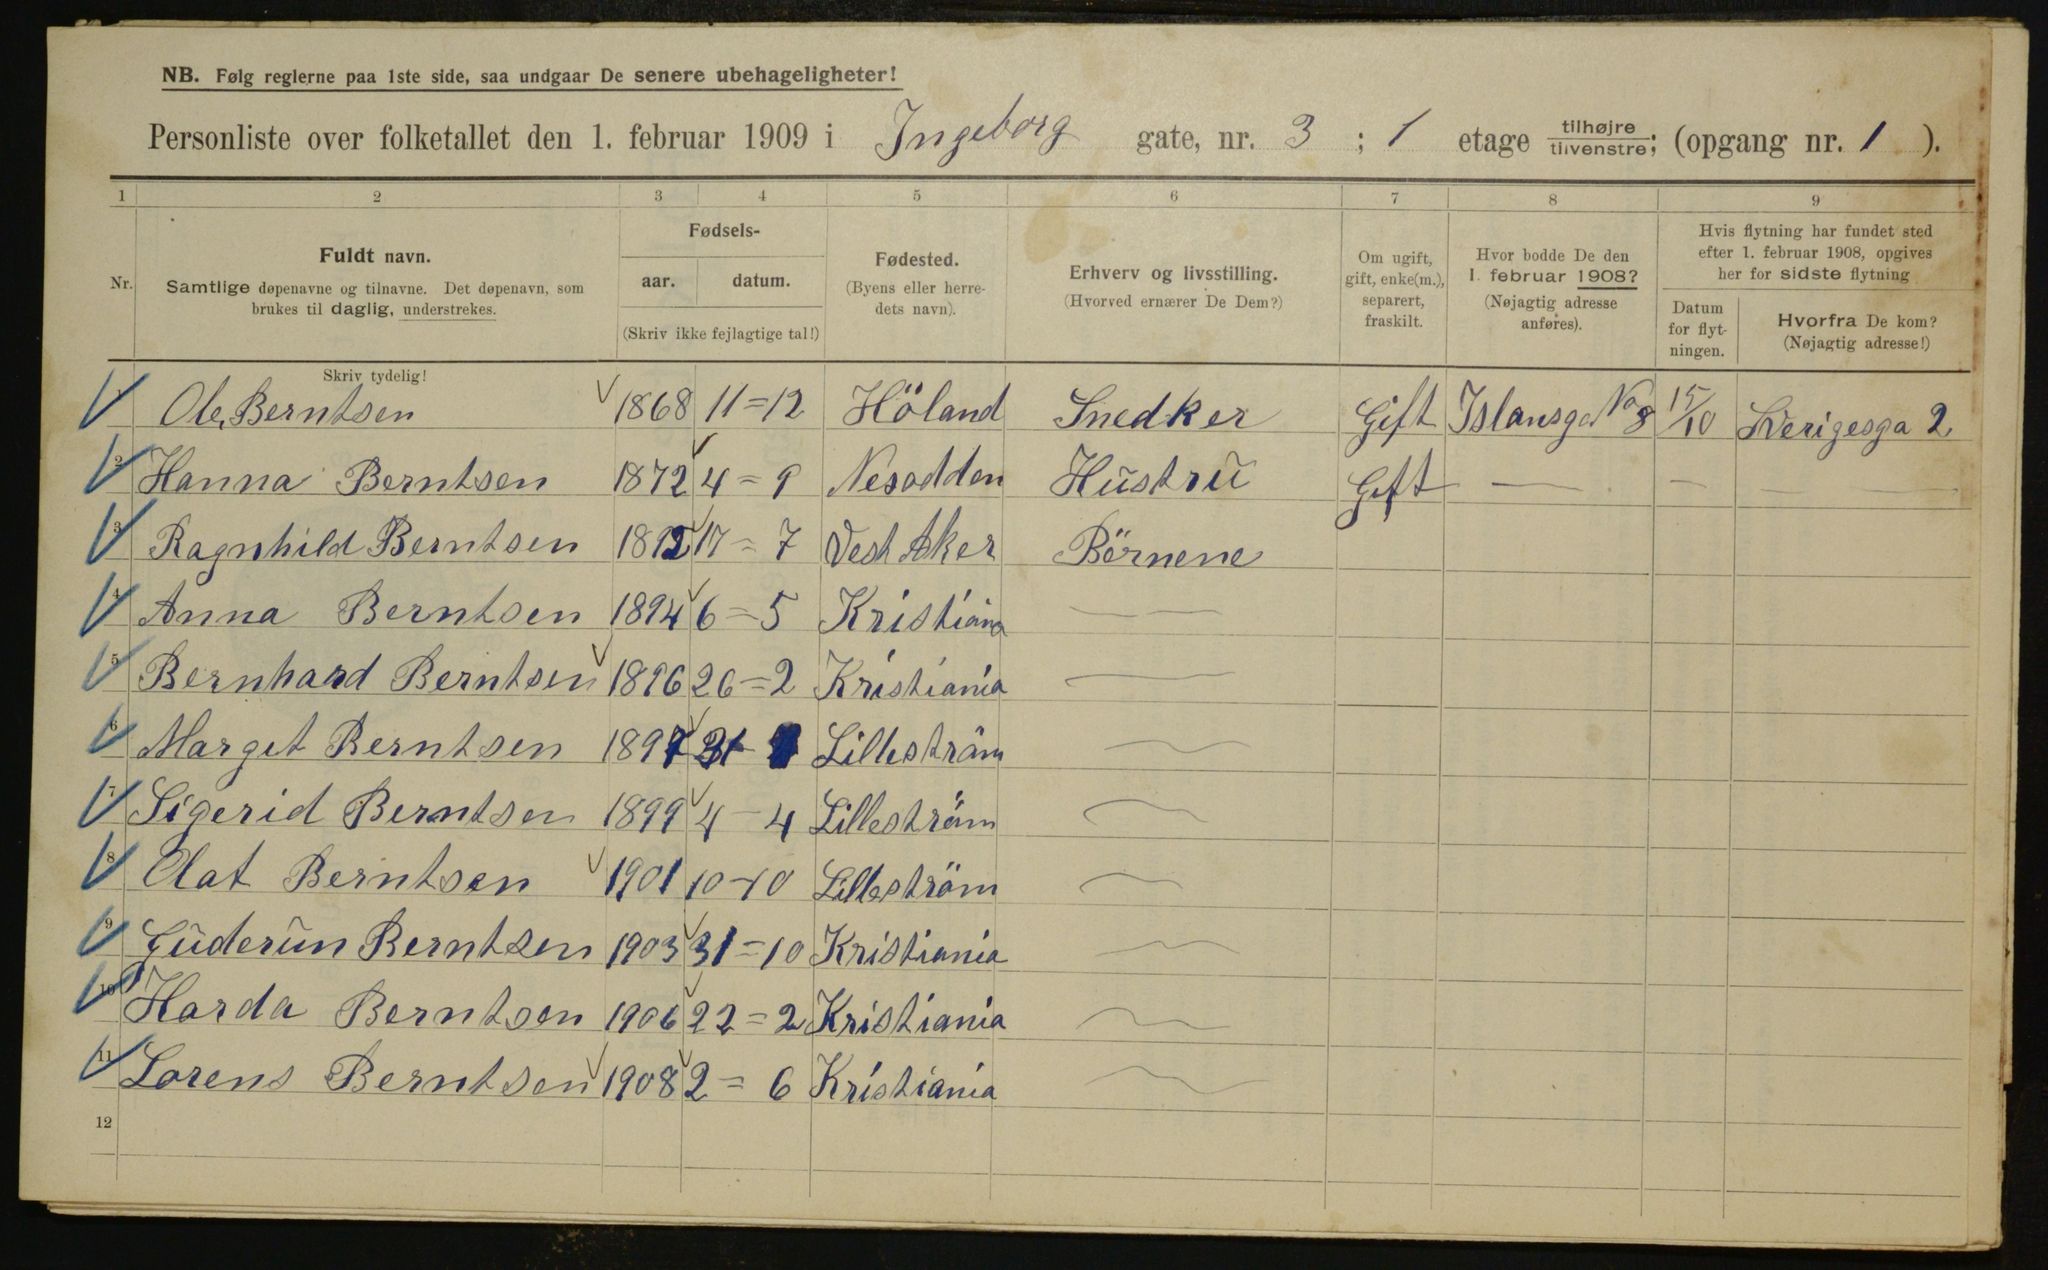 NB. Følg reglerne paa 1ste side, saa undgaar De senere ubehageligheter!
Personliste over folketallet den 1. februar 1909 i Ingeborg gate, nr. 3 ; 1 etage tilhøjre tilvenstre; (opgang nr. 1 ).
1 2 3 4 5 6 7 8 9
Nr.
Fuldt navn.
Samtlige døpenavne og tilnavne. Det døpenavn, som
brukes til daglig, understrekes.
Skriv tydelig!
Fødsels-
aar. datum.
(Skriv ikke fejlagtige tal!)
Fødested.
(Byens eller herre-
dets navn).
Erhverv og livsstilling.
(Hvorved ernærer De Dem?)
Om ugift,
gift, enke(m.),
separert,
fraskilt.
Hvor bodde De den
1. februar 1908?
(Nøjagtig adresse
anføres).
Hvis flytning har fundet sted
efter 1. februar 1908, opgives
her for sidste flytning
Datum
for flyt-
ningen.
Hvorfra De kom?
(Nøjagtig adresse!)
1 Ole Berntsen 1868 11=12 Höland Snedker Gift Islansga No 8 15/10 Sverigesga 2
2 Hanna Berntsen 1872 4=9 Nesodden Hustru Gift — — —
3 Ragnhild Berntsen 1892 17=7 Vest Aker Börnene
4 Anna Berntsen 1894 6=5 Kristiania —
5 Bernhard Berntsen 1896 26=2 Kristiania —
6 Margit Berntsen 1897 31- Lilleström —
7 Sigerid Berntsen 1899 4-4 Lilleström —
8 Olat Berntsen 1901 10-10 Lilleström —
9 Guderun Berntsen 1903 31=10 Kristiania —
10 Harda Berntsen 1906 22=2 Kristiania —
11 Lorens Berntsen 1908 2=6 Kristiania —
12